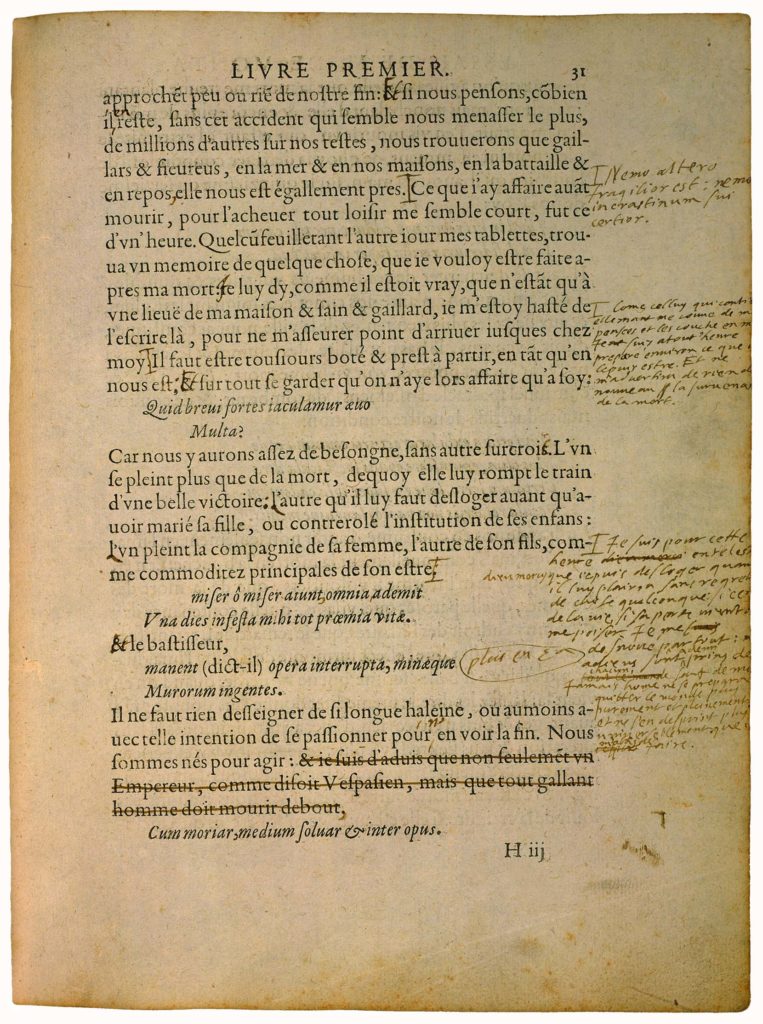 LIVRE PREMIER. 31
approchẽt peu ou riẽ de nostre fin: Et si nous pensons, cõbien
il en reste, sans cet accident qui semble nous menasser le plus,
de millions d'autres sur nos testes, nous trouuerons que gail-
lars & fieureus, en la mer & en nos maisons, en la battaille &
en repos, elle nous est égallement pres. Ce que i'ay affaire auãt
mourir, pour l'acheuer tout loisir me semble court, fut ce
d'vn' heure. Quelcũ feuilletant l'autre iour mes tablettes, trou-
ua vn memoire de quelque chose, que ie vouloy estre faite a-
pres ma mort: Je luy dy, comme il estoit vray, que n'estãt qu'à
vne lieuë de ma maison & sain & gaillard, ie m'estoy hasté de
l'escrire là, pour ne m'asseurer point d'arriuer iusques chez
moy. Il faut estre tousiours boté & prest à partir, en tãt qu'en
nous est; Et sur tout se garder qu'on n'aye lors affaire qu'a soy:
Quid breui fortes iaculamur æuo
Multa?
Car nous y aurons assez de besongne, sans autre surcrois. L'vn
se pleint plus que de la mort, dequoy elle luy rompt le train
d'vne belle victoire: L'autre qu'il luy faut desloger auant qu'a-
uoir marié sa fille, ou contrerolé l'institution de ses enfans:
L'vn pleint la compagnie de sa femme, l'autre de son fils, com-
me commoditez principales de son estre.
miser ô miser aiunt, omnia ademit
Vna dies infesta mihi tot præmia vitæ.
Et le bastisseur,
manent (dict-il) opera interrupta, minæque
Murorum ingentes.
Il ne faut rien desseigner de si longue haleine, ou aumoins a-
uec telle intention de se passionner pour n' en voir la fin. Nous
sommes nés pour agir: & ie suis d'aduis que non seulemẽt vn
Empereur, comme disoit Vespasien, mais que tout gallant
homme doit mourir debout,
Cum moriar, medium soluar & inter opus.
H iij
Nemo altero
fragilior est: nemo
in crastinum sui
certior.
Come celuy qui conti
ellemant me couue de m
panses et les couche en m
suy a tout' heure
prepare environ ce que
ie puis estre. Et ne
m'advertira de rien de
nouueau la suruena
de la mort.
Je suis pour cette
heure en tel est
dieu mercy que ie puis desloger quan
il luy plaira sans regret
de chose quelconque: si ce
de la vie, si sa perte vient
me poiser. Je me
desnoue par tout: m
adieus sont
de chacun sauf de mo
Jamais home ne se prepara
quitter le monde plus
purement et pleinement
et ne s'en desprint plus